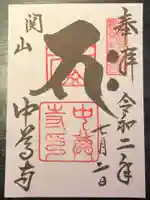 奉拝
令和二年
七月二日
関山
中尊寺